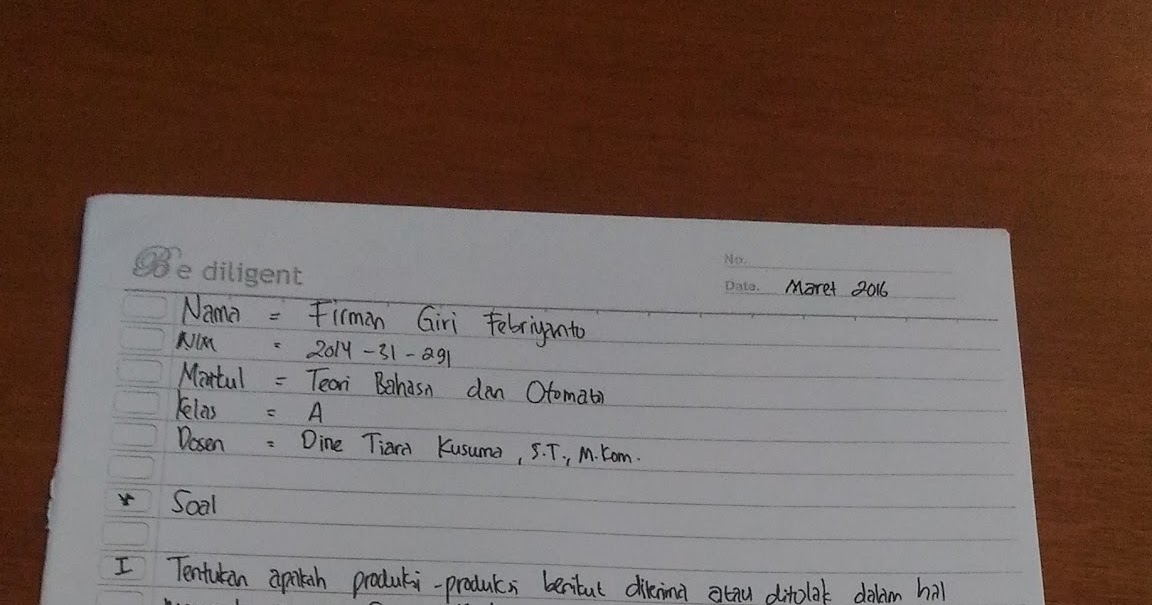 Be diligent
No.
Date. Maret 2016
Nama = Firman Giri Febriyanto
NIM = 2014-31-291
Matkul = Teori Bahasa dan Otomata
Kelas = A
Dosen = Dine Tiara Kusuma, S.T., M.Kom.
* Soal
I Tentukan apakah produksi-produksi berikut diterima atau ditolak dalam hal